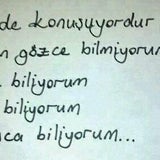 de konuşuyordur
n gözce bilmiyorum
biliyorum
biliyorum
ca biliyorum...